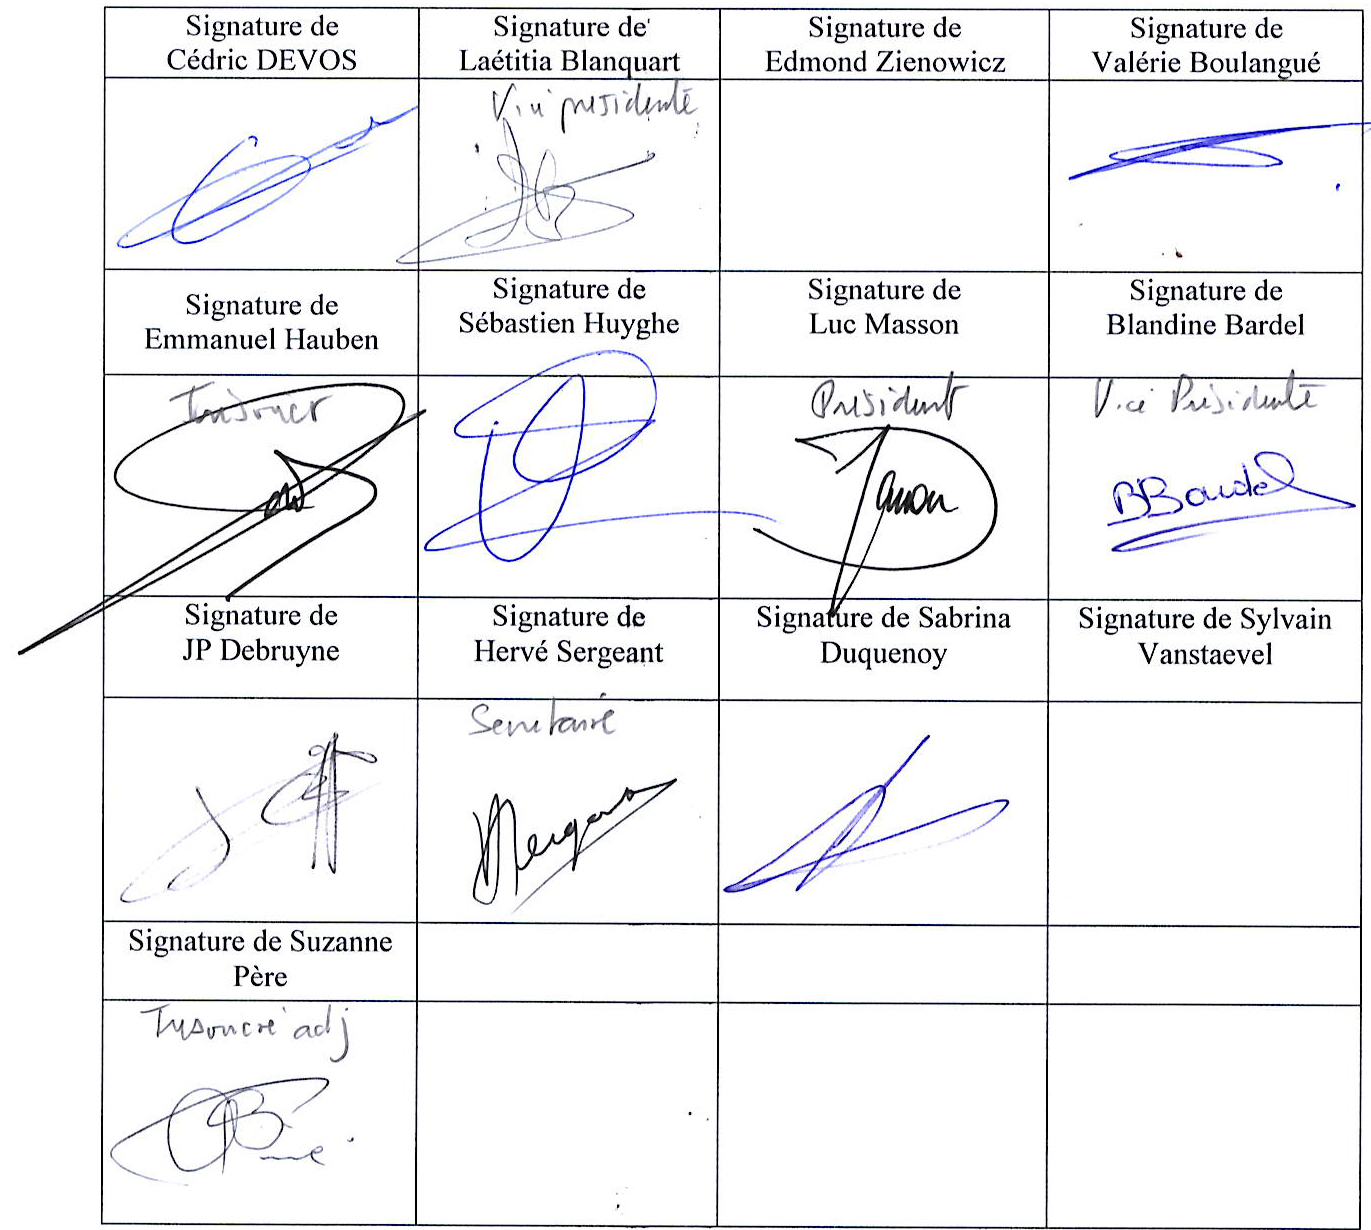 Signature de
Cédric DEVOS
Signature de
Laétitia Blanquart
Signature de
Edmond Zienowicz
Signature de
Valérie Boulangué
Vice présidente
Signature de
Emmanuel Hauben
Signature de
Sébastien Huyghe
Signature de
Luc Masson
Signature de
Blandine Bardel
Président
Vice Présidente
BBardel
Signature de
JP Debruyne
Signature de
Hervé Sergeant
Signature de Sabrina
Duquenoy
Signature de Sylvain
Vanstaevel
Secrétaire
Signature de Suzanne
Père
adj